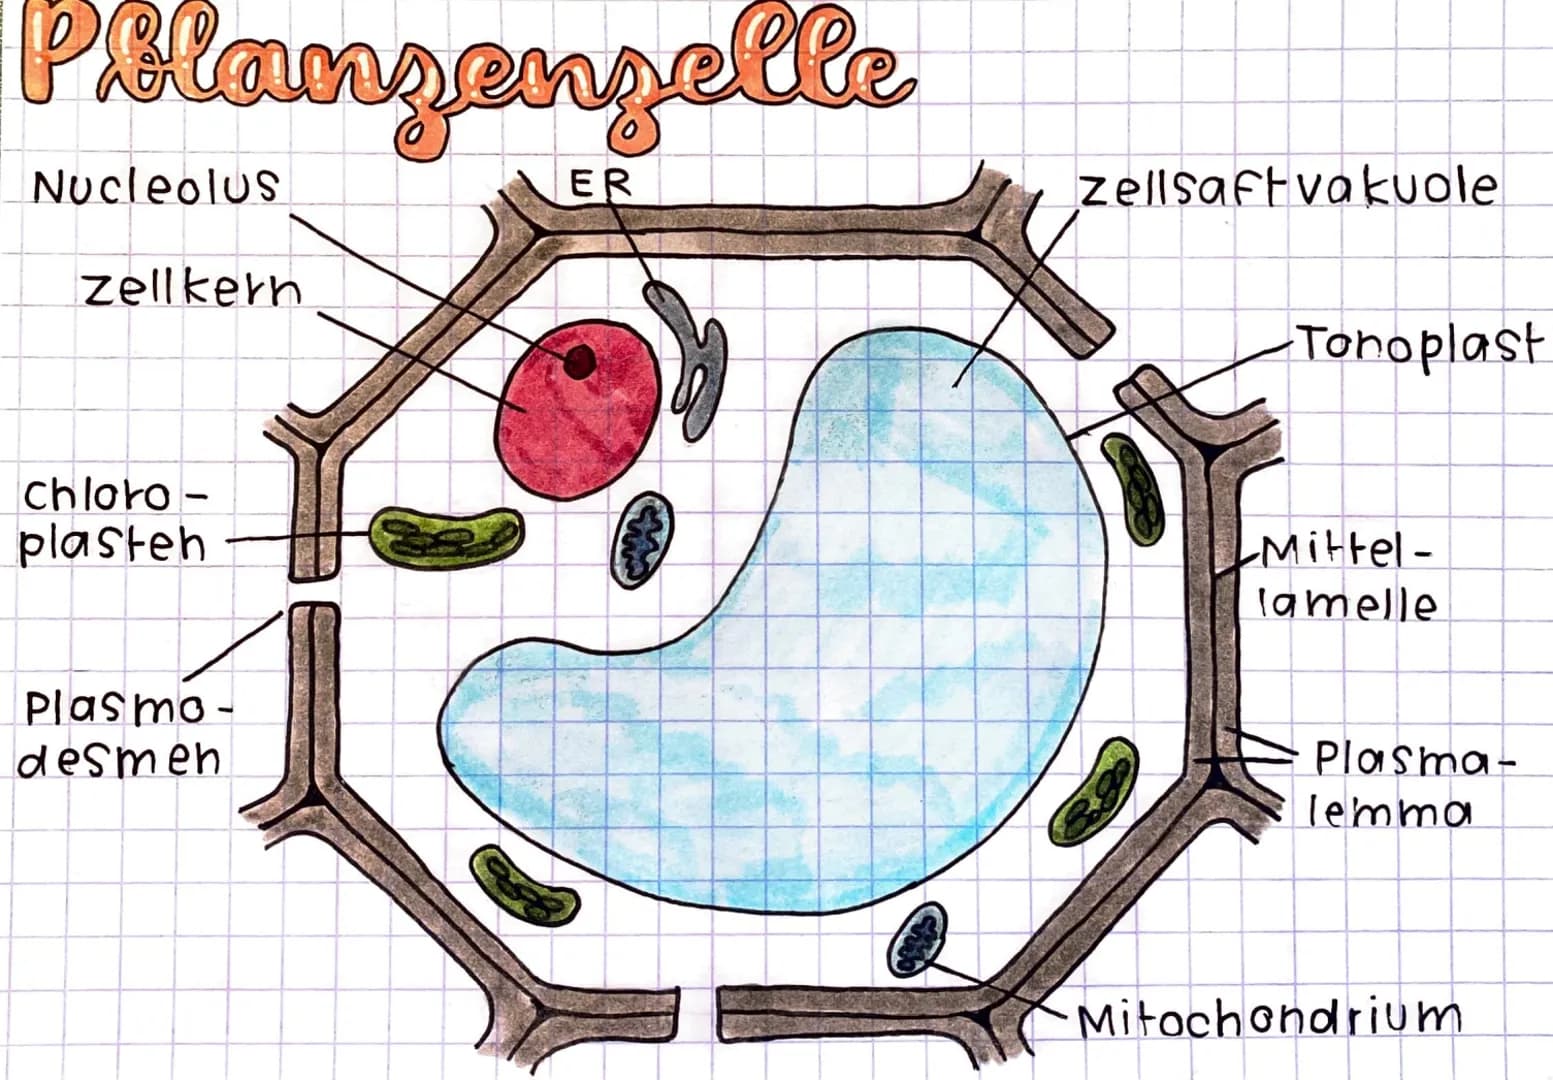 Pflanzenzelle
Nucleolus
ER
zellsaftvakuole
zellkern
Tonoplast
chloro-
plasten
Mittel-
lamelle
Plasmo-
desmen
Plasma-
lemma
Mitochondrium